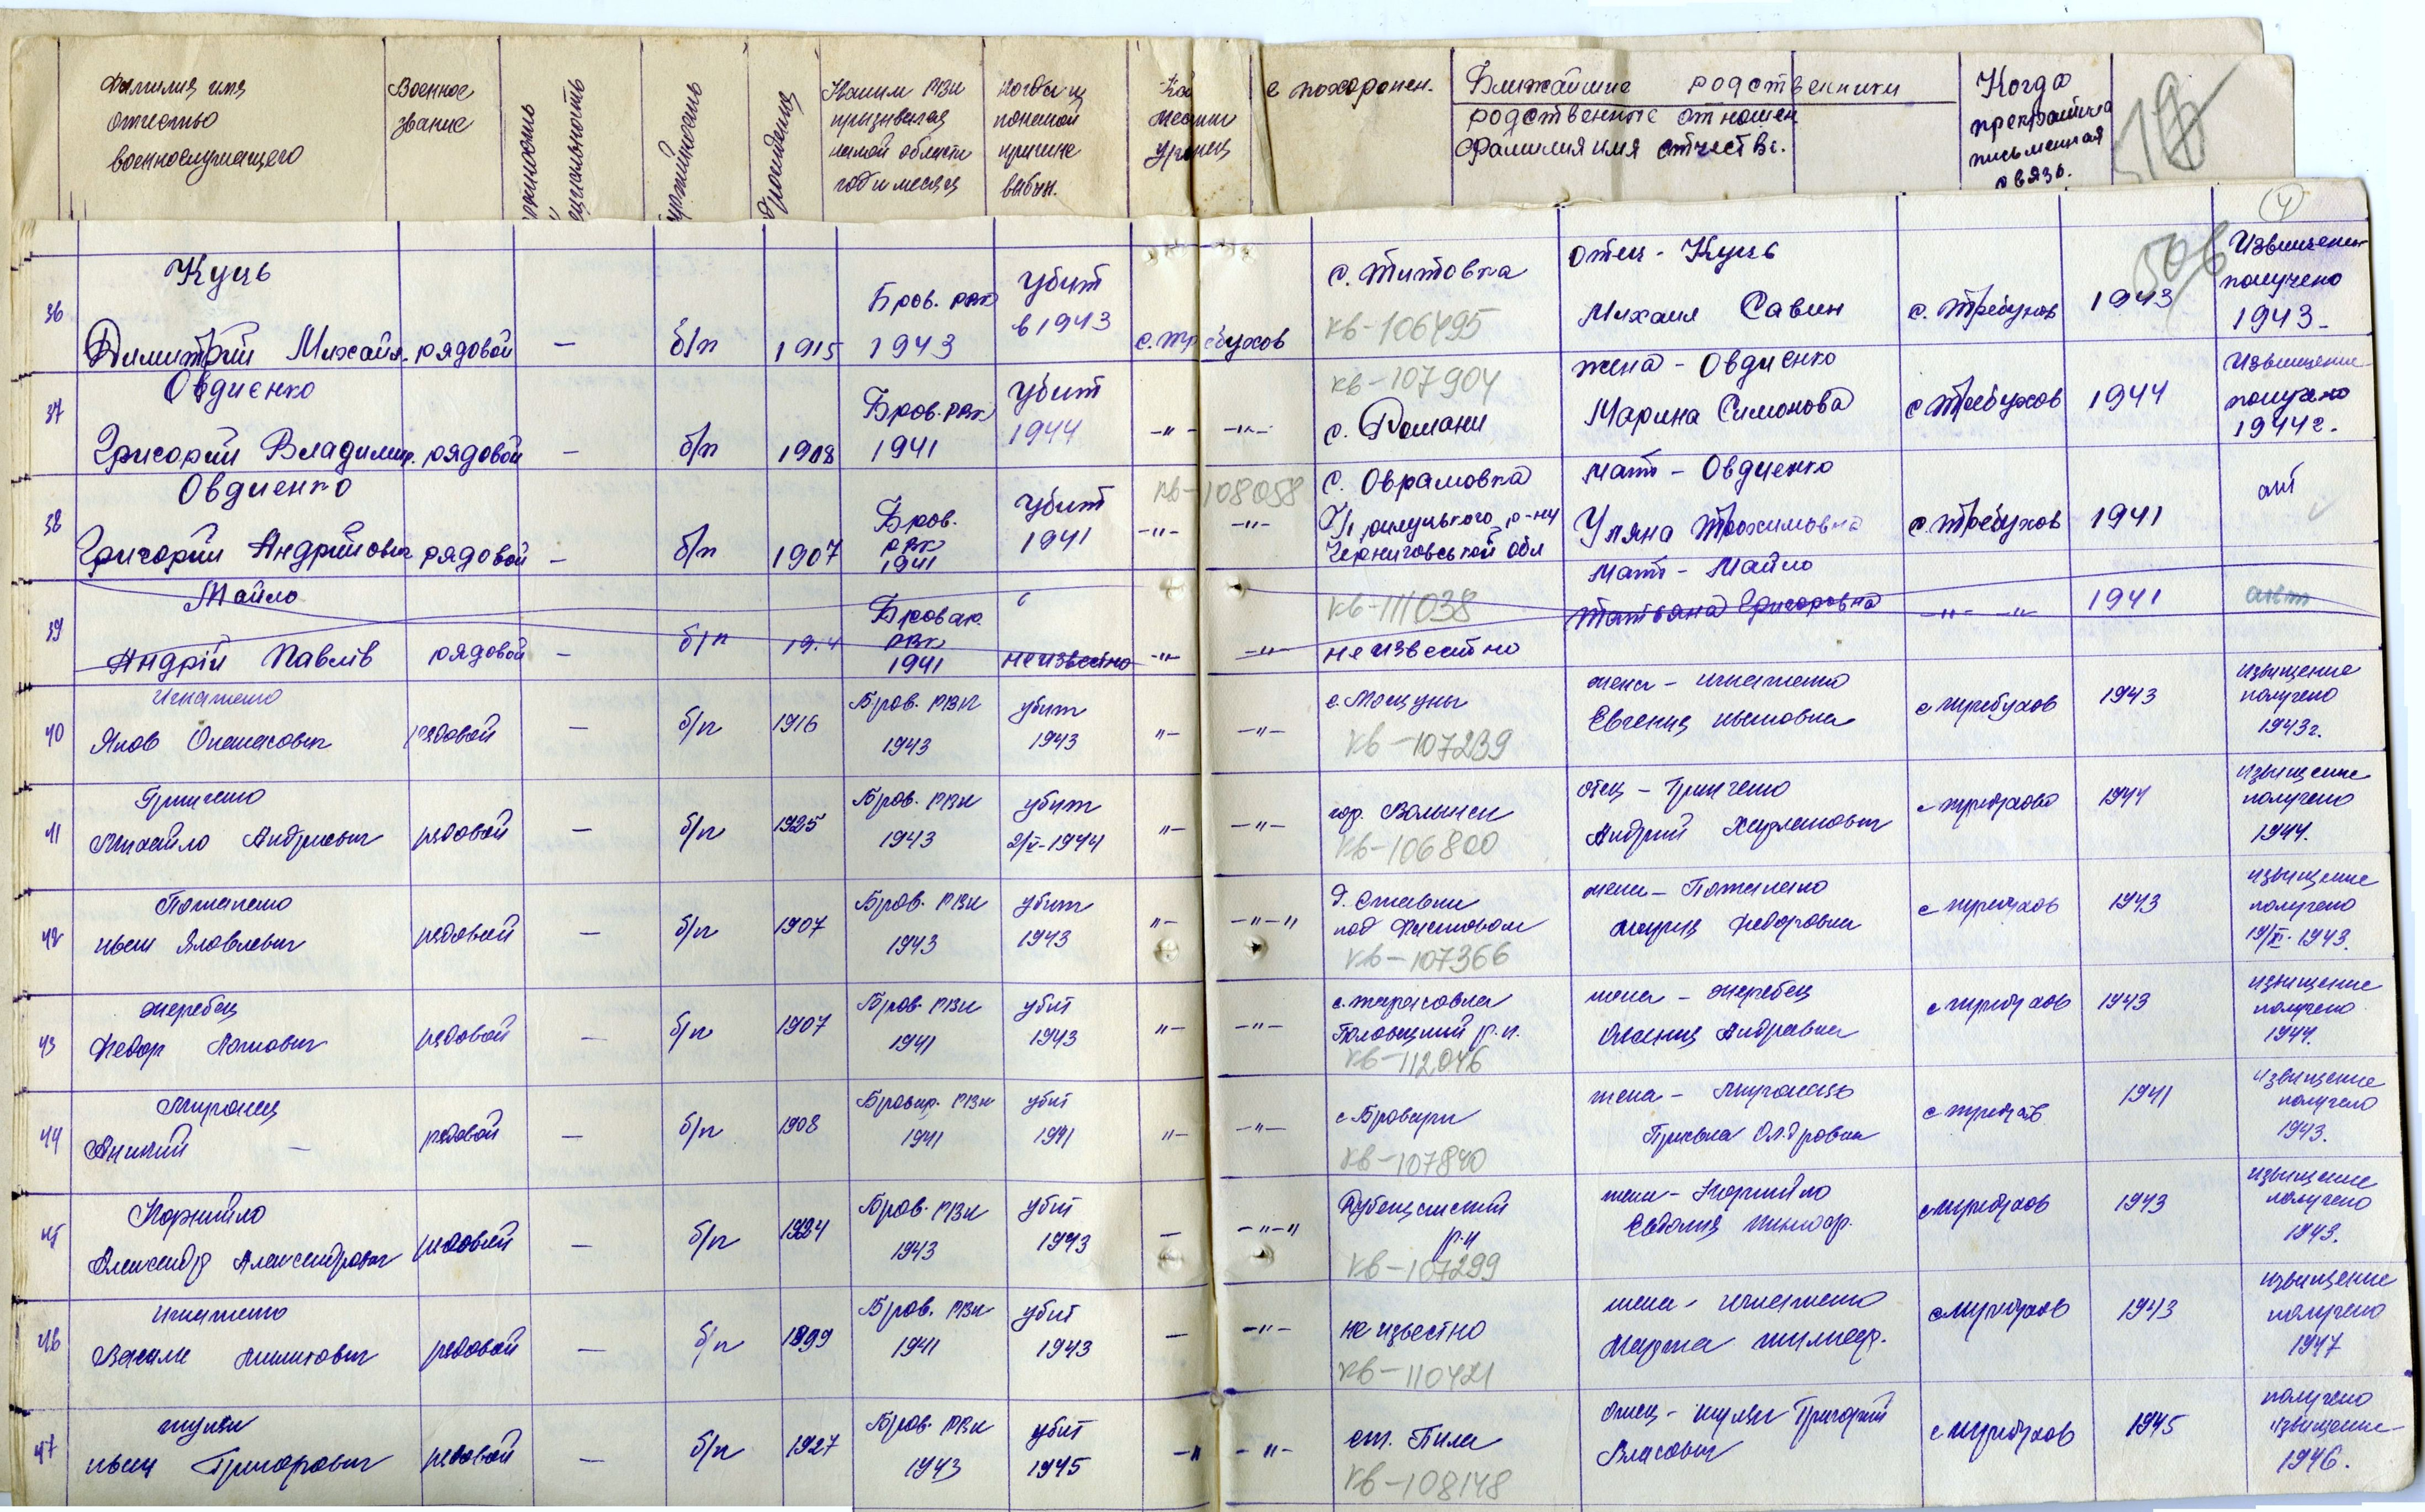 Фамилия имя
отчество
военнослужащего
Военное
звание
партийность
Каким РВК
призывался
какой области
год и месяц
Когда и
по какой
причине
выбыл.
уроженец
е похоронен.
Ближайшие родственники
родственные отношен
фамилия имя отчество.
Когда
прекратилась
письменная
связь.
4
36
Куць
Димитрий Михайл.
рядовой
—
б/п
1915
Бров. рвк
1943
Убит
в 1943
с. Требухов
с. Титовка
кв-106495
отец - Куць
Михаил Савин
с. Требухов
1943
Извищение
получено
1943
37
Овдиєнко
Григорий Владимир.
рядовой
—
б/п
1908
Бров. РВК
1941
Убит
1944
-"- -"-
кв-107904
с. Романи
жена - Овдиенко
Марина Симонова
с Требухов
1944
Извищение
получено
1944г.
38
Овдиенко
Григорий Андрійович
рядовой
—
б/п
1907
Бров.
рвк
1941
Убит
1941
кв-108058
-"- -"-
с. Оврамовка
р-ну
Черниговської обл
Мать - Овдиенко
Уляна Трохимовна
с. Требухов
1941
акт
39
Майло
Андрій Павлів
рядовой
—
б/п
Бровар.
РВК
1941
неизвестно
-"- -"-
кв-111038
неизвестно
Мать - Майло
Татьяна Григоровна
-"- -"-
1941
акт
40
Игнатенко
Яков Опанасович
рядовой
—
б/п
1916
Бров. РВК
1943
убит
1943
"- -"-
с. Мощуны
кв-107239
жена - Игнатенко
Евгения Ивановна
с Требухов
1943
извищение
получено
1943г.
41
Гринченко
Михайло Андриевич
рядовой
—
б/п
1925
Бров. РВК
1943
убит
2/V-1944
"- -"-
гор. Волынск
кв-106800
отец - Гринченко
Андрий
с Требухово
1944
извищение
получено
1944.
42
Потапенко
Иван Яковлевич
рядовой
—
б/п
1907
Бров. РВК
1943
убит
1943
"- -"-"
д. Ставки
под
кв-107366
жена - Потапенко
Мария Федоровна
с Требухов
1943
извищение
получено
19/XI-1943.
43
Жеребец
Федор
рядовой
—
б/п
1907
Бров. РВК
1941
убит
1943
"- -"-
с. Тарасовка
р-н.
кв-112046
жена - Жеребец
Андревна
с Требухов
1943
извищение
получено
1944.
44
Миронец
—
рядовой
—
б/п
1908
Бровар. РВК
1941
убит
1941
"- -"-
с Бровары
кв-107840
жена -
с Требухов
1941
извищение
получено
1943.
45
Корнийло
Александр Александрович
рядовой
—
б/п
1924
Бров. РВК
1943
убит
1943
— -"-"
р-н
кв-107299
Корнийло
Евдокия
с Требухов
1943
извищение
получено
1943.
46
Игнатенко
Василь
рядовой
—
б/п
1899
Бров. РВК
1941
убит
1943
— -"-
не извесно
кв-110421
жена - Игнатенко
Марта
с Требухов
1943
извищение
получено
1947
47
Иван Григорович
рядовой
—
б/п
1927
Бров. РВК
1943
убит
1945
-" -"-
ст. Пила
кв-108148
отец - Григорий
Власович
с Требухов
1945
получено
извищение
1946.